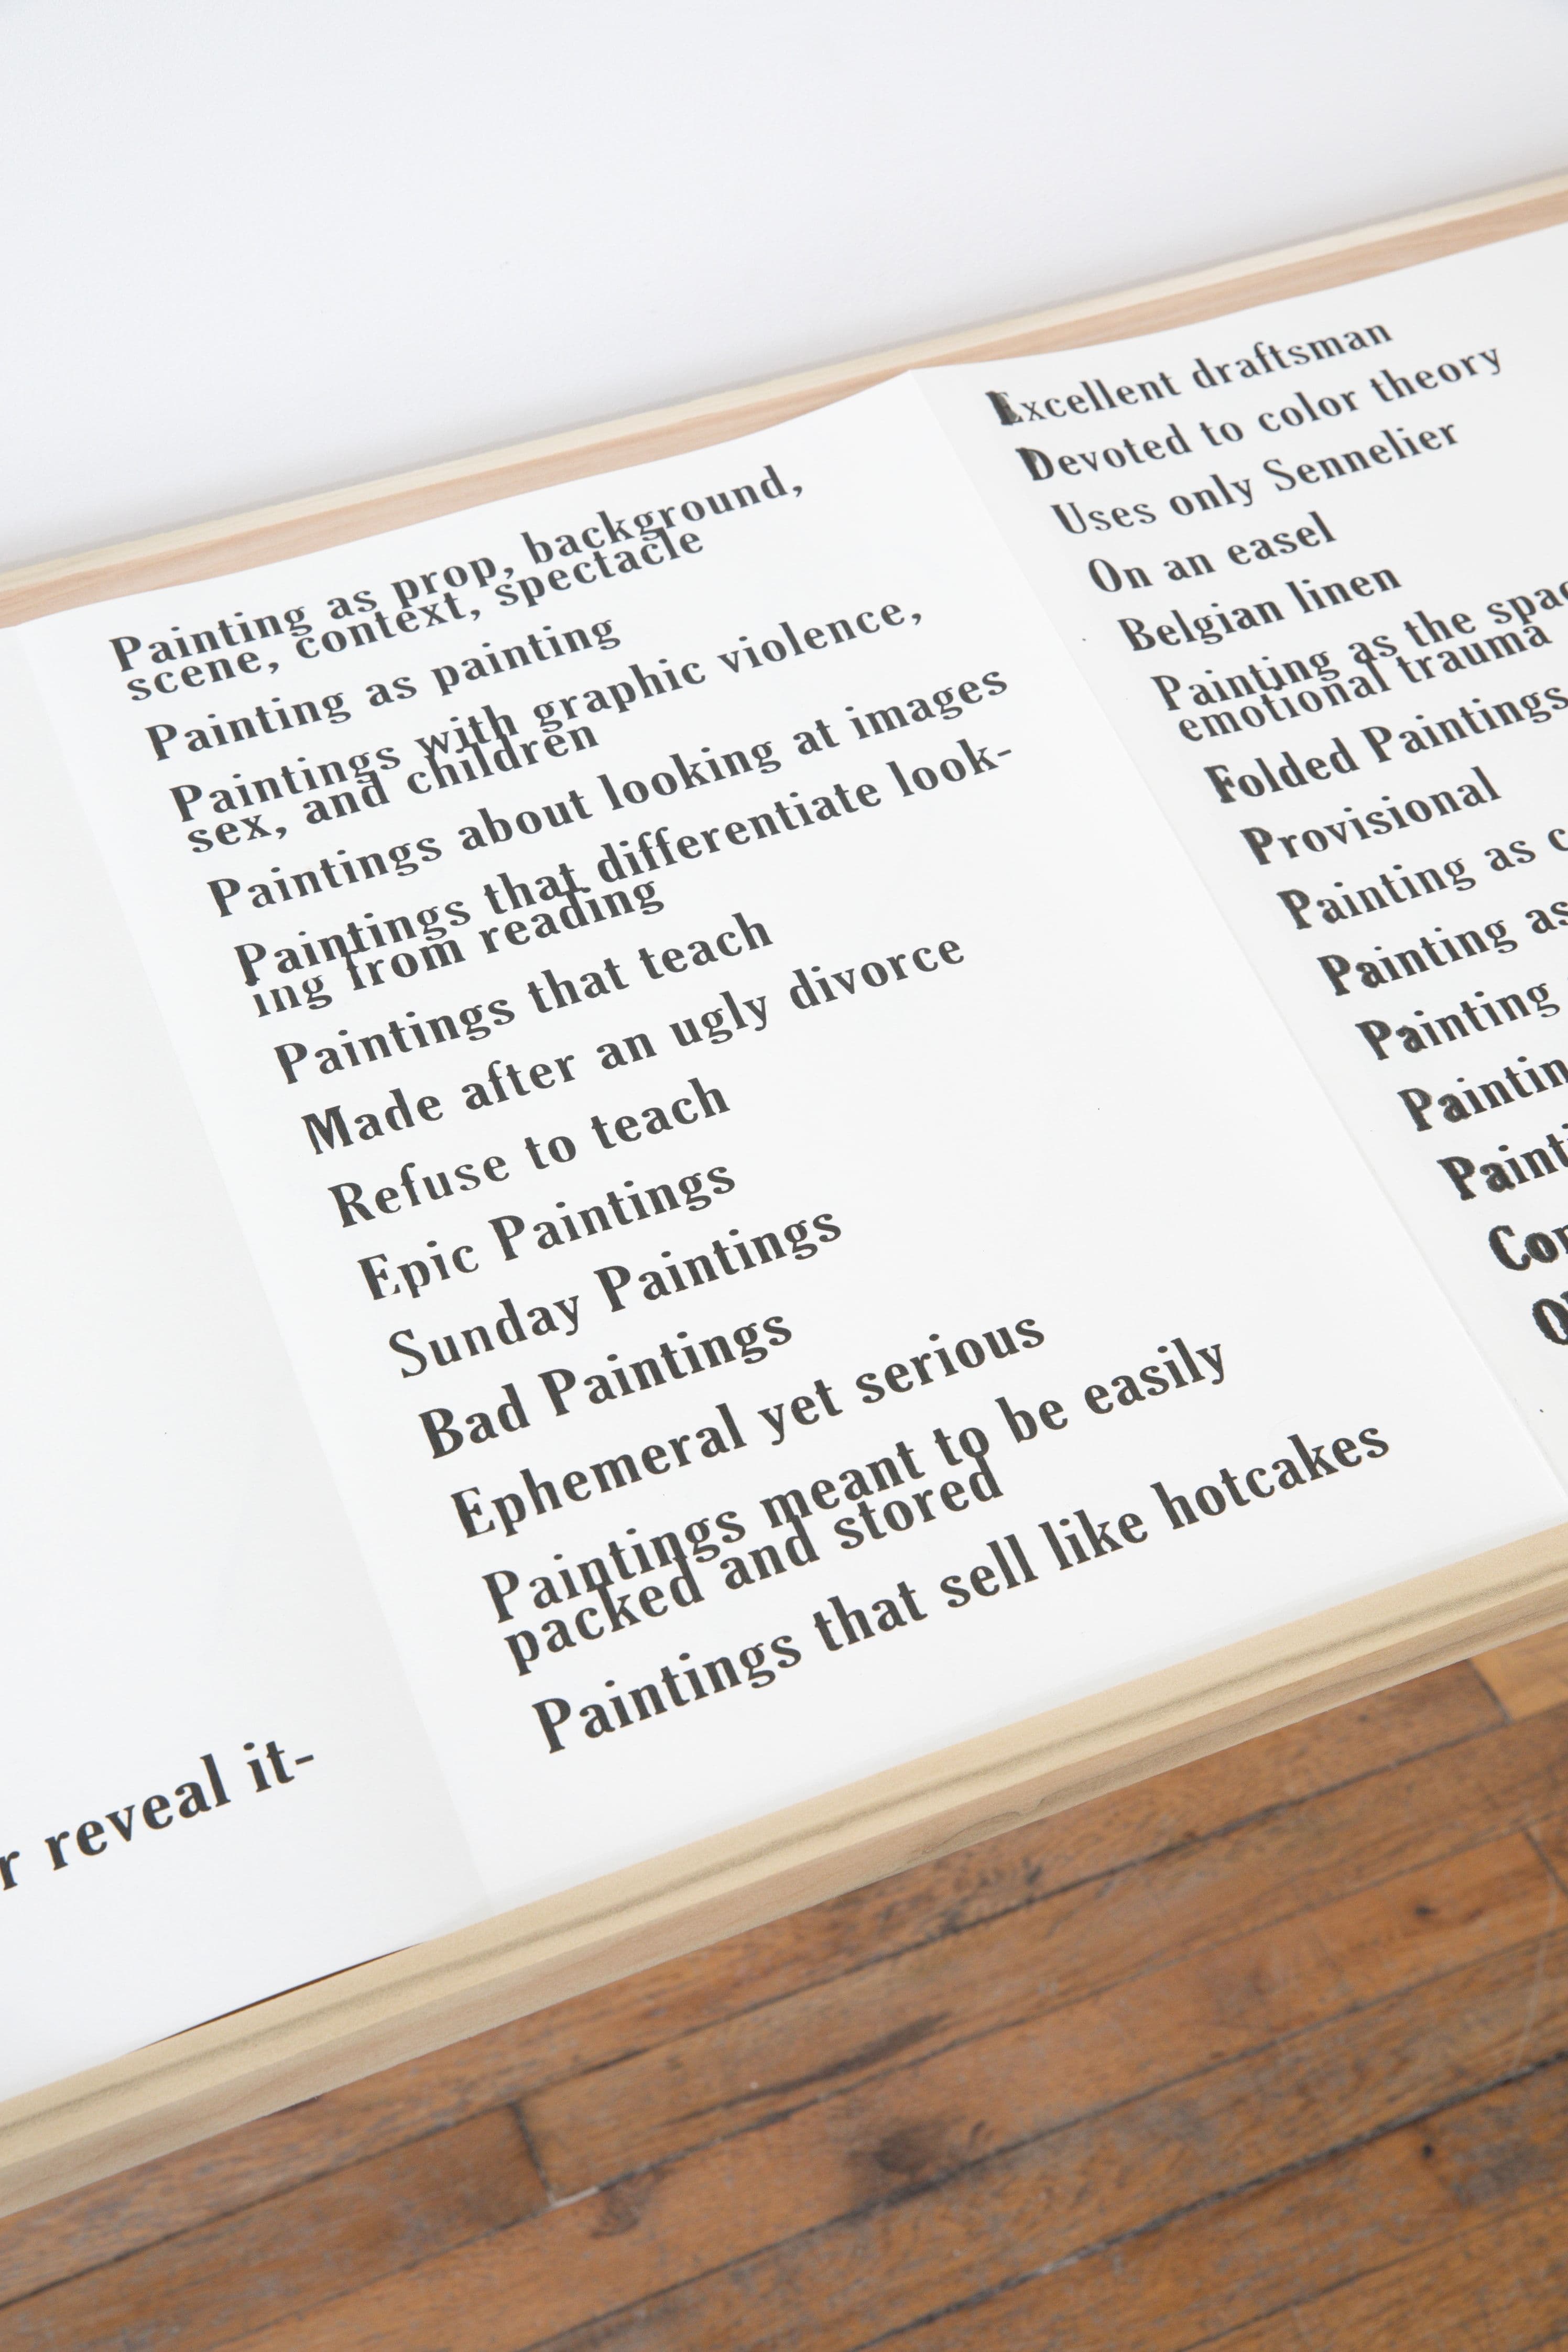 r reveal it-
Painting as prop, background,
scene, context, spectacle
Painting as painting
Paintings with graphic violence,
sex, and children
Paintings about looking at images
Paintings that differentiate look-
ing from reading
Paintings that teach
Made after an ugly divorce
Refuse to teach
Epic Paintings
Sunday Paintings
Bad Paintings
Ephemeral yet serious
Paintings meant to be easily
packed and stored
Paintings that sell like hotcakes
Excellent draftsman
Devoted to color theory
Uses only Sennelier
On an easel
Belgian linen
Painting as the spac
emotional trauma
Folded Paintings
Provisional
Painting as c
Painting as
Painting
Paintin
Painti
Con